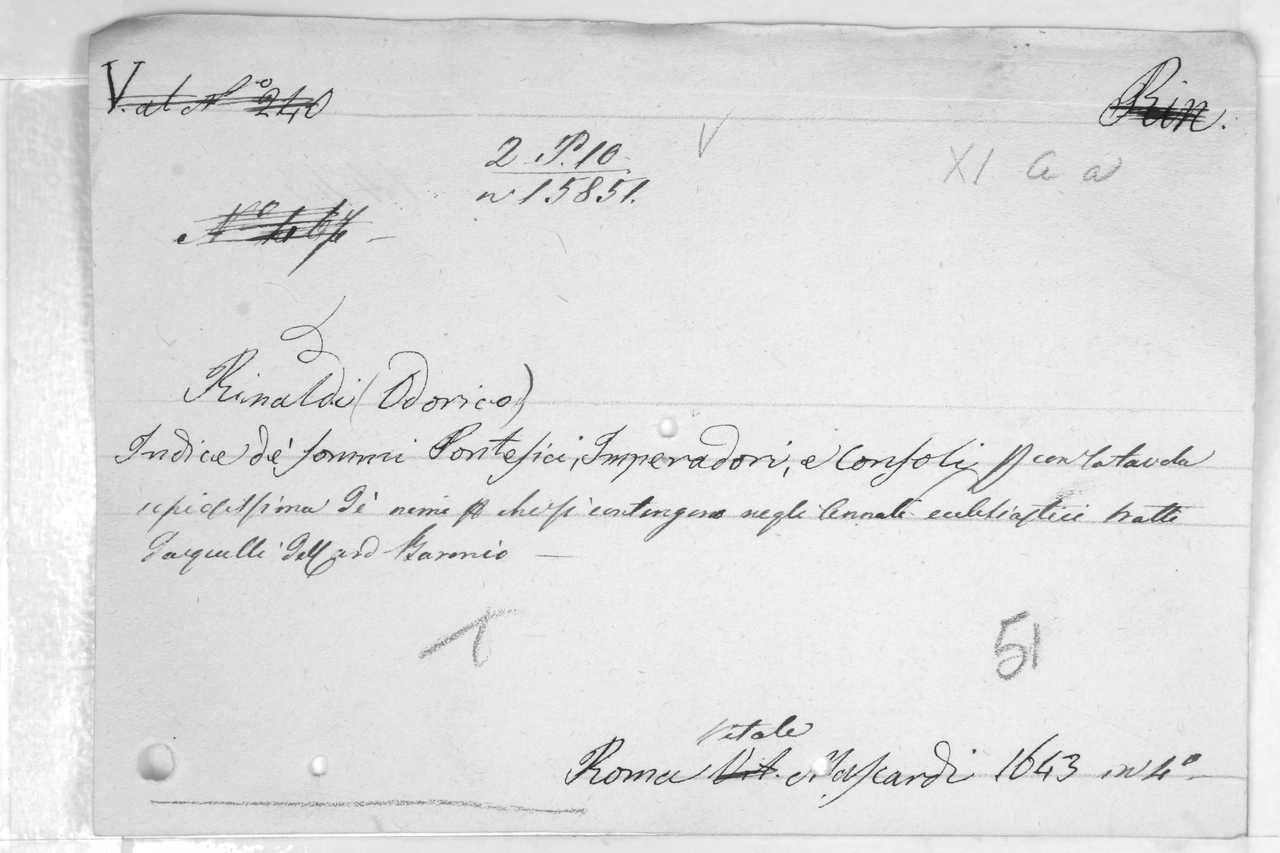 V. al N.° 240
Rin.
2. P. 10
n 15851.
V
XI a a
N.°
Rinaldi (Odorico)
Indice de' sommi Pontefici, Imperadori, e Consoli, con la tavola
copiosissima de' nomi che si contengono negli Annali ecclesiastici tratti
da quelli del Card Baronio —
1
51
Vitale
Roma Vit. Mascardi 1643 in 4° —